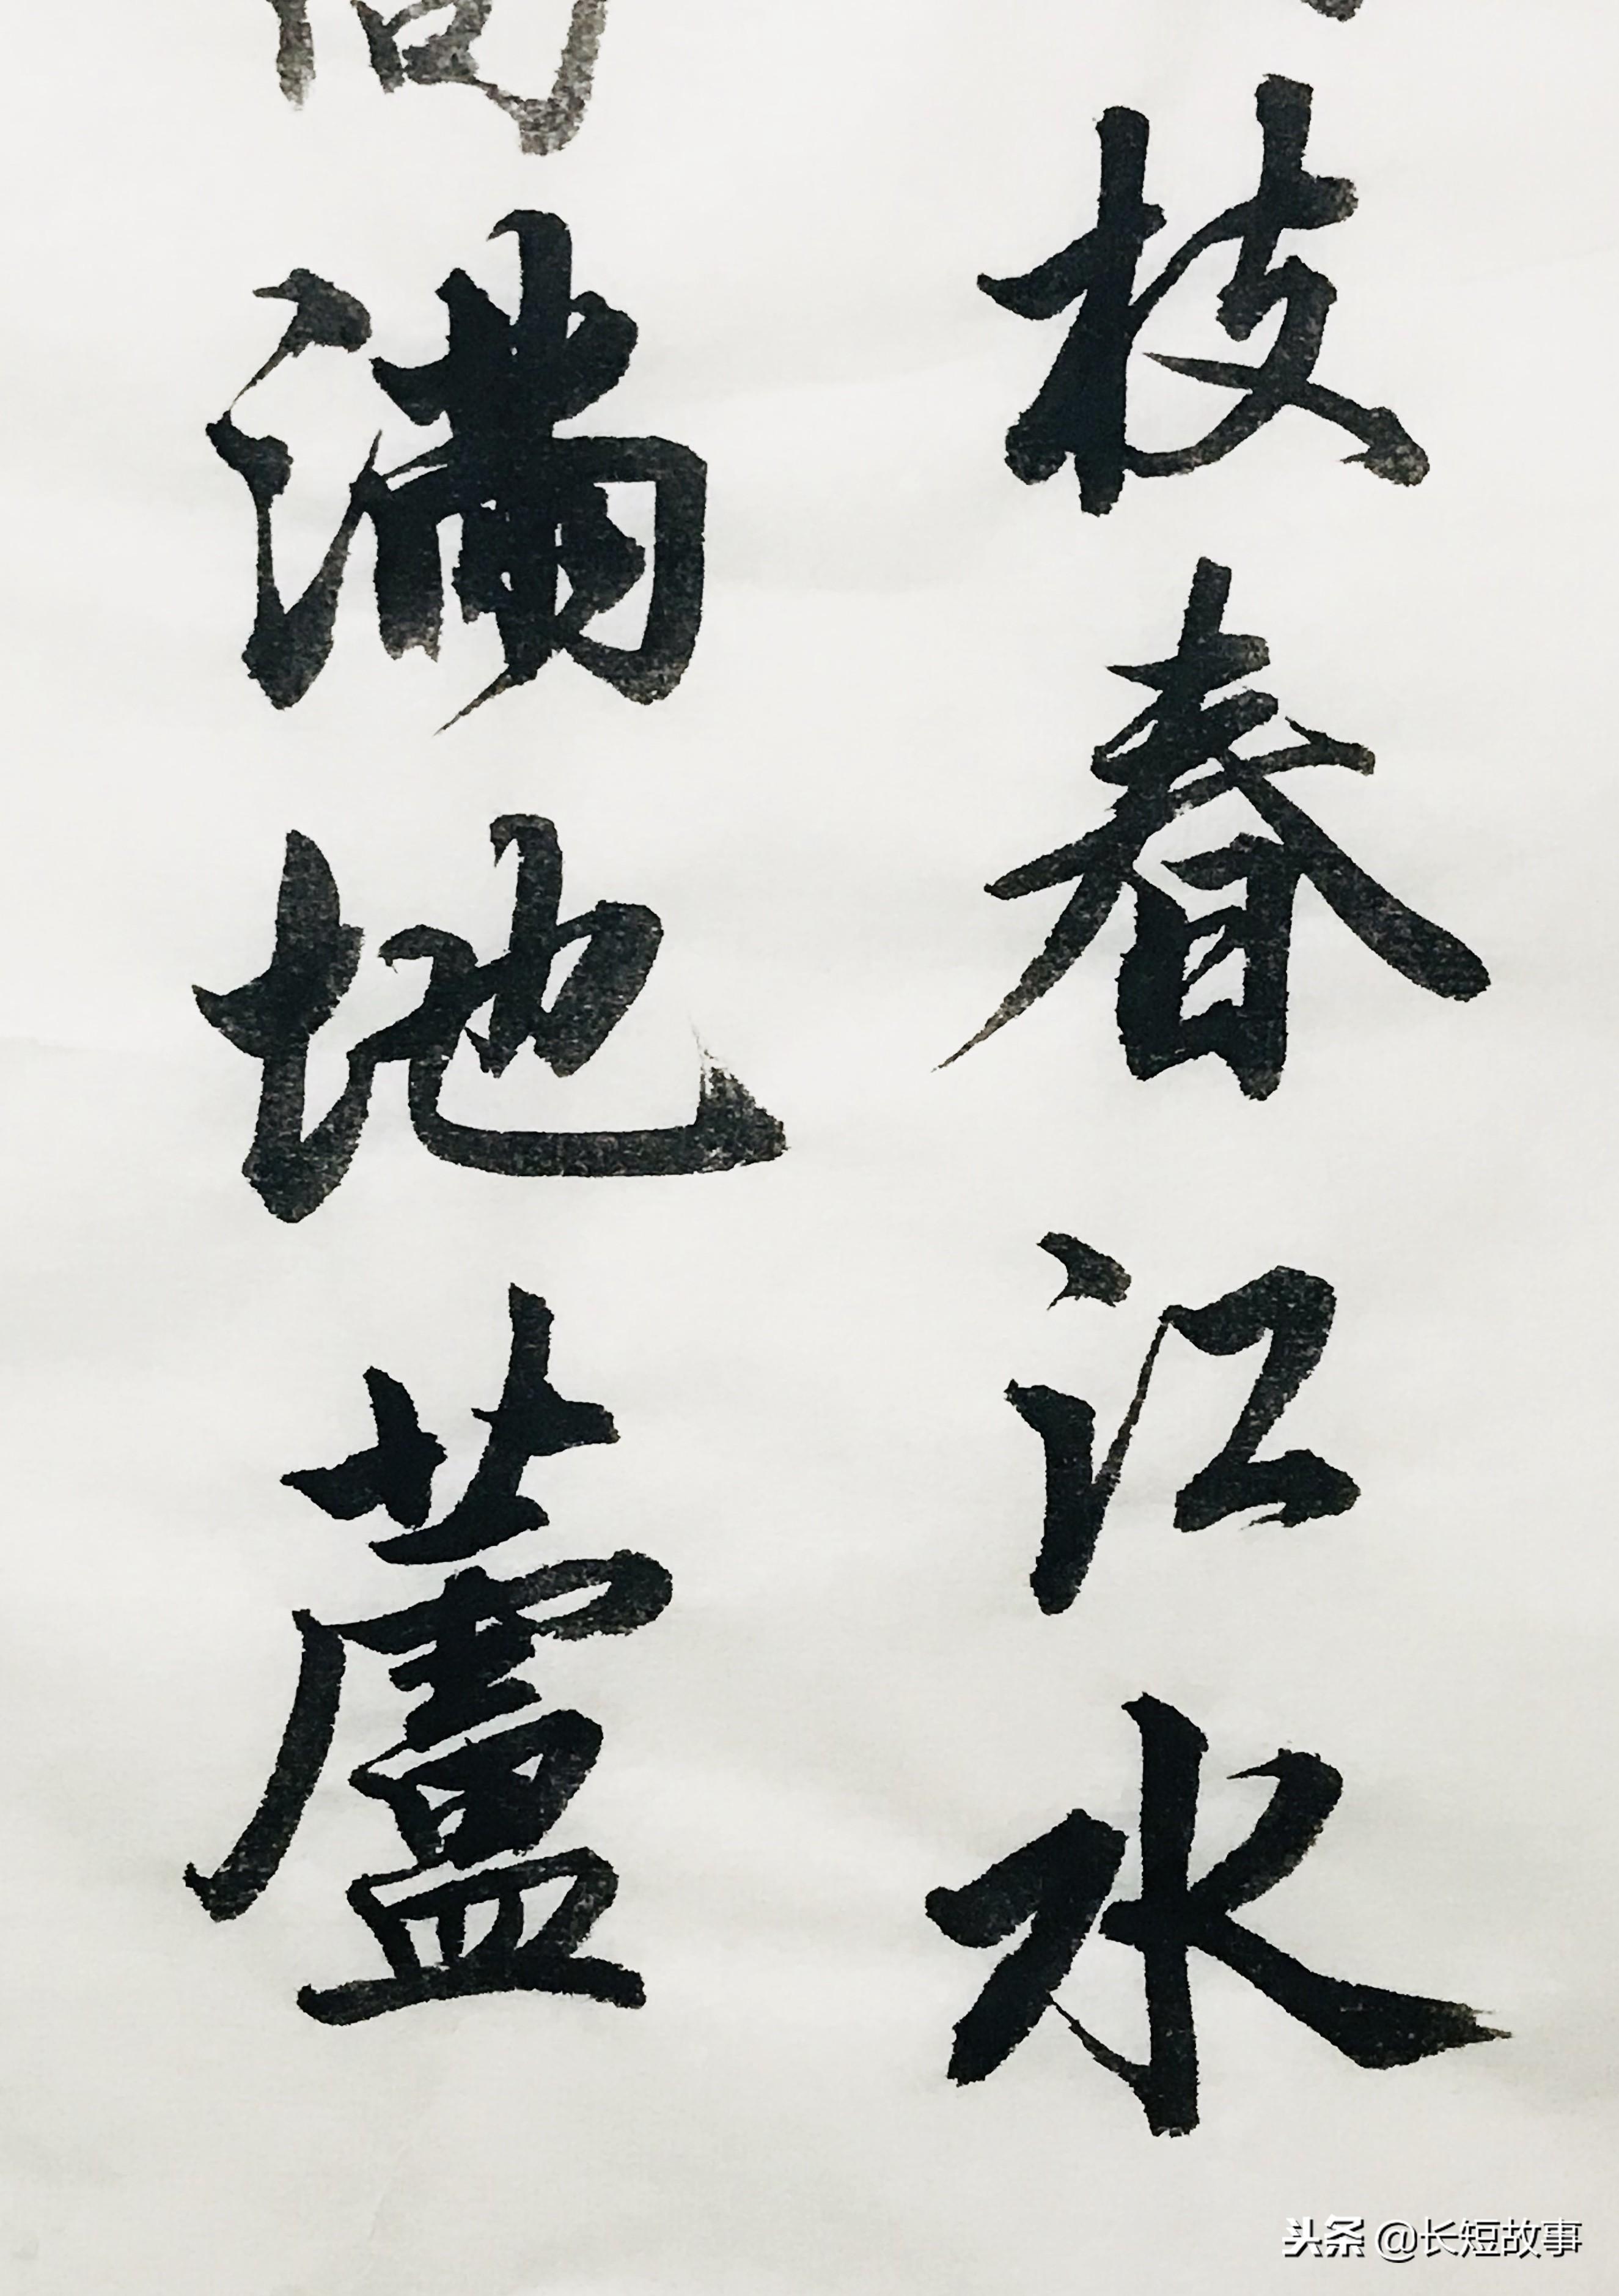 枝春江水
滿地蘆
头条 @长短故事